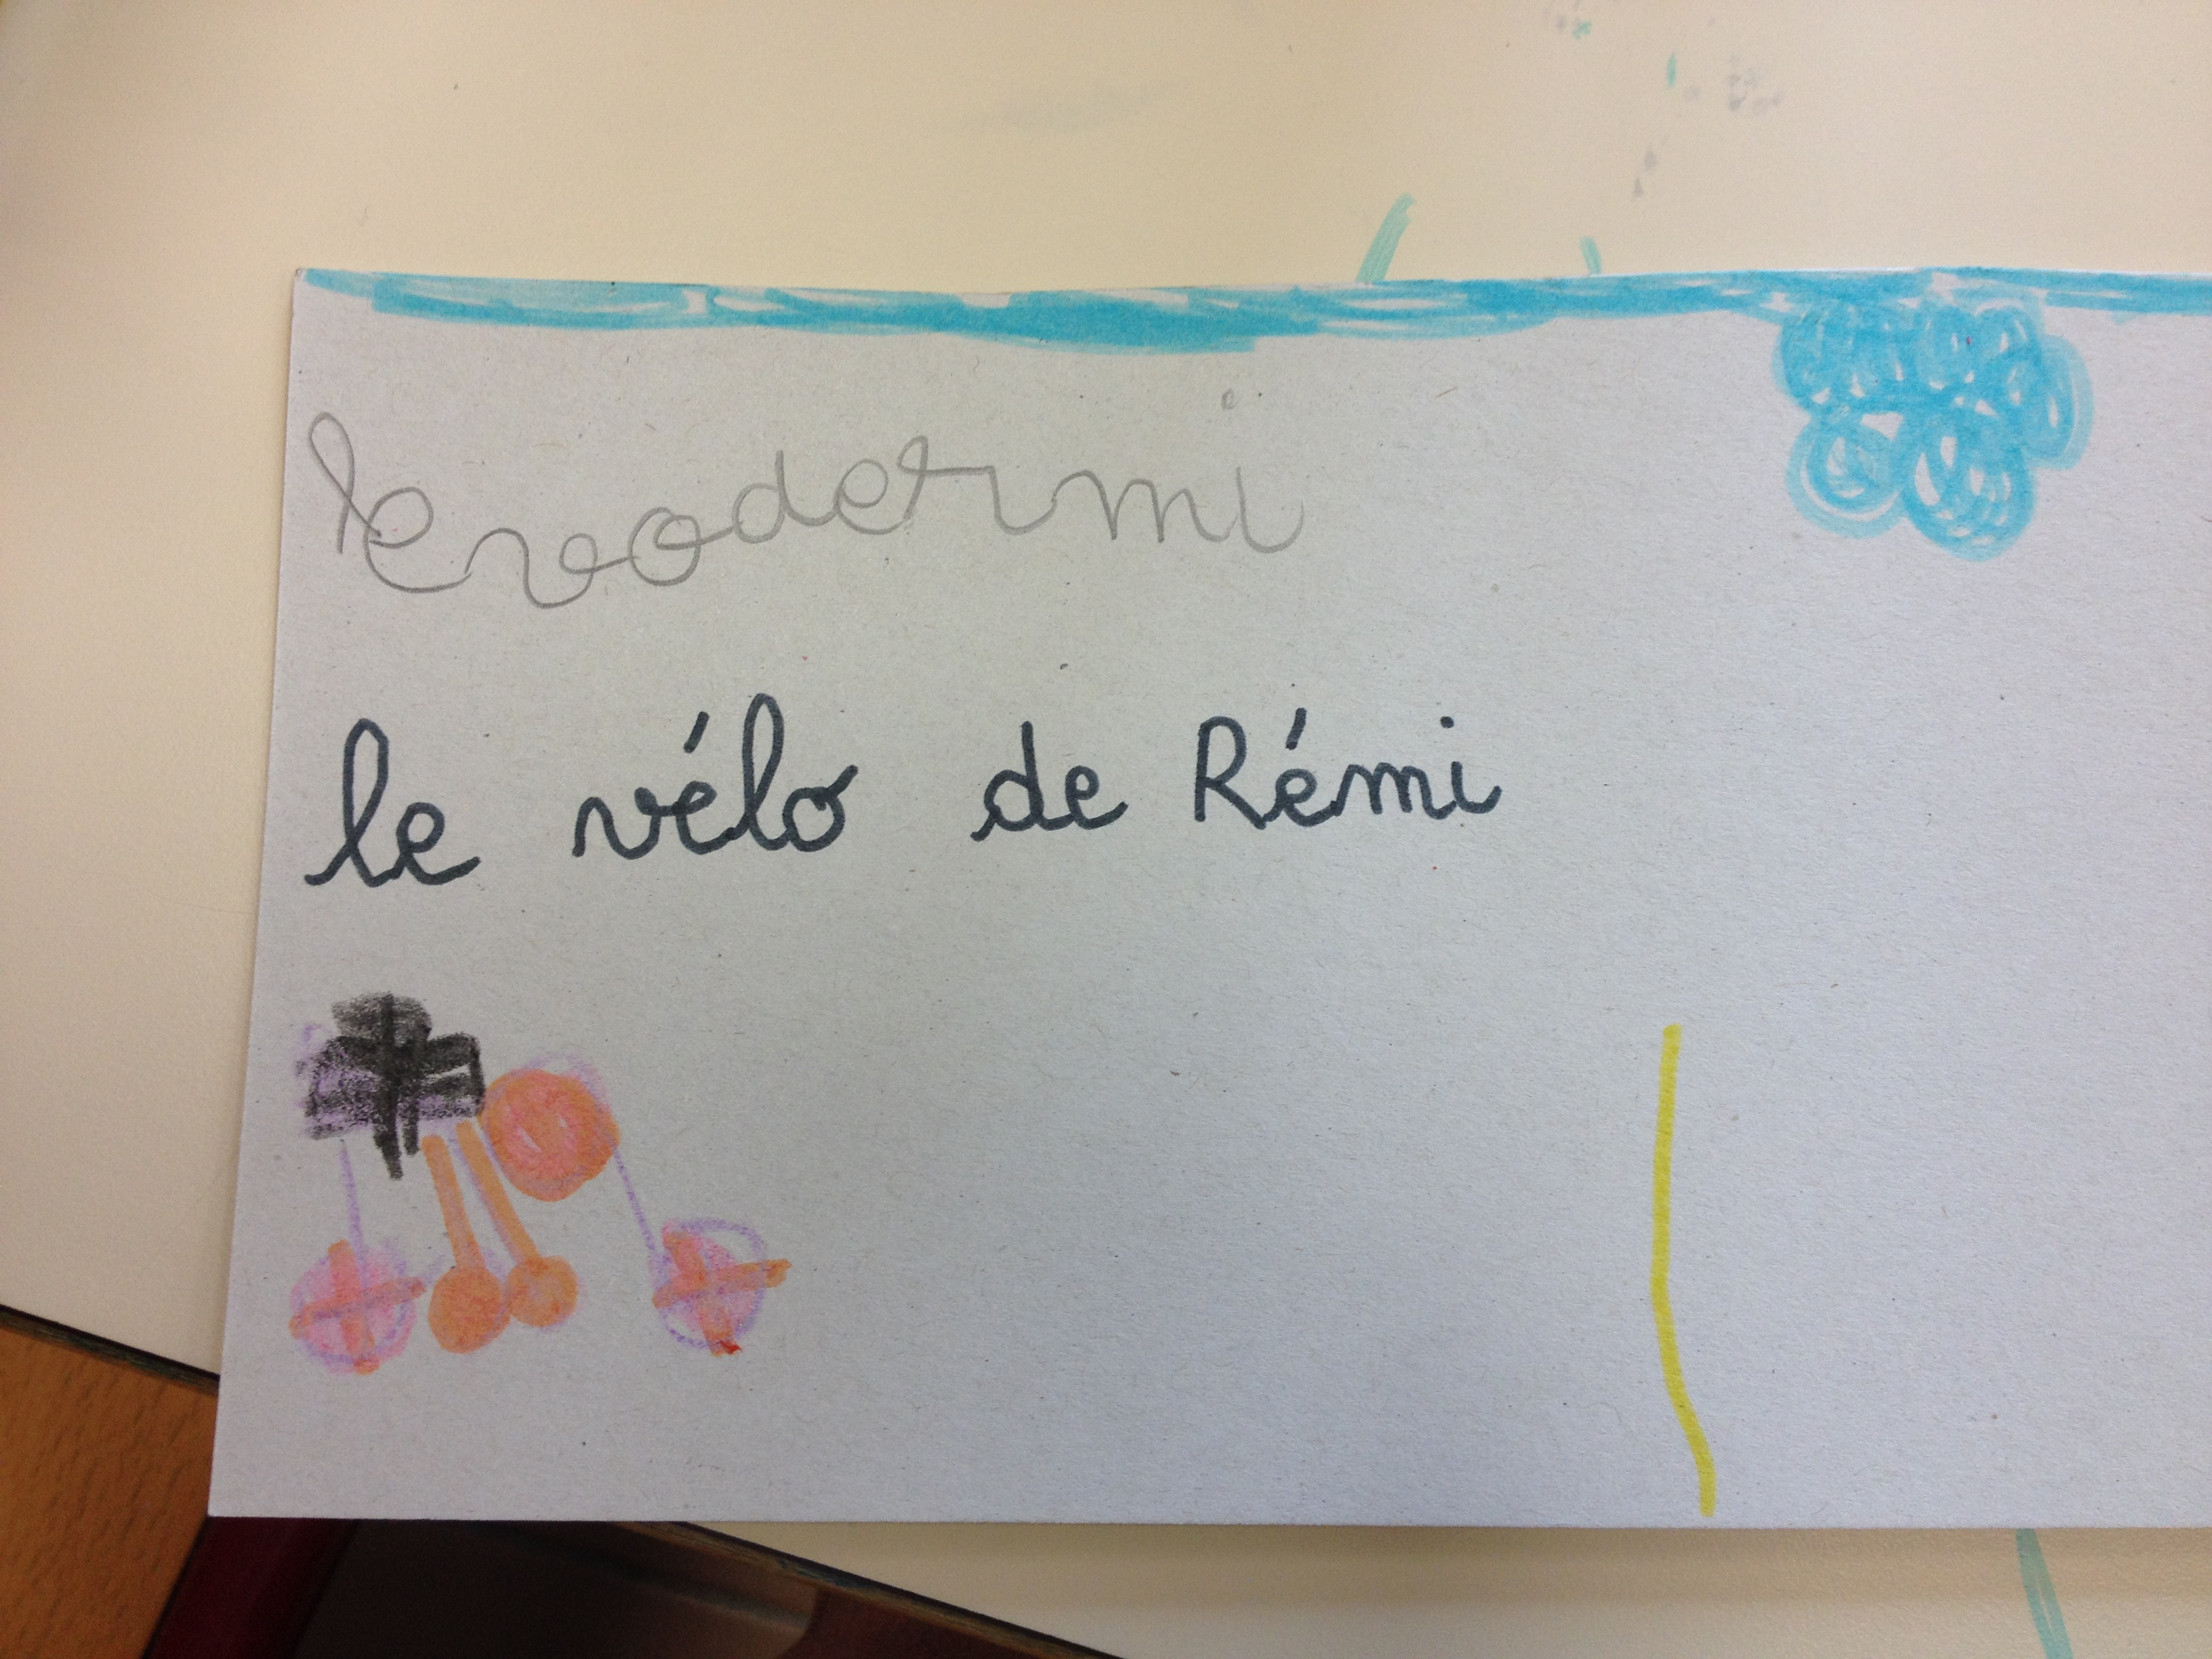 levodermi
le vélo de Rémi